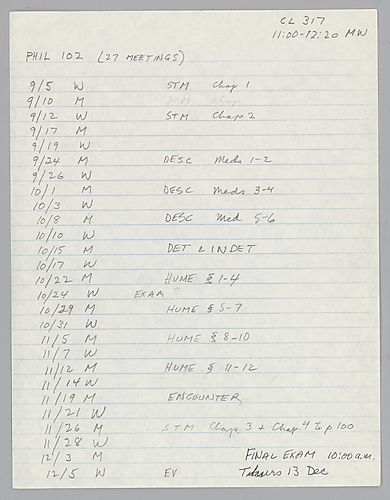 CL 317
11:00-12:20 MW
PHIL 102 (27 MEETINGS)
9/5 W STM Chap 1
9/10 M STM Chap
9/12 W STM Chap 2
9/17 M
9/19 W
9/24 M DESC Meds 1-2
9/26 W
10/1 M DESC Meds 3-4
10/3 W
10/8 M DESC Med 5-6
10/10 W
10/15 M DET & INDET
10/17 W
10/22 M HUME § 1-4
10/24 W EXAM
10/29 M HUME § 5-7
10/31 W
11/5 M HUME § 8-10
11/7 W
11/12 M HUME § 11-12
11/14 W
11/19 M ENCOUNTER
11/21 W
11/26 M STM Chap. 3 + Chap 4 to p 100
11/28 W
12/3 M FINAL EXAM 10:00 a.m.
12/5 W EV Thurs 13 Dec